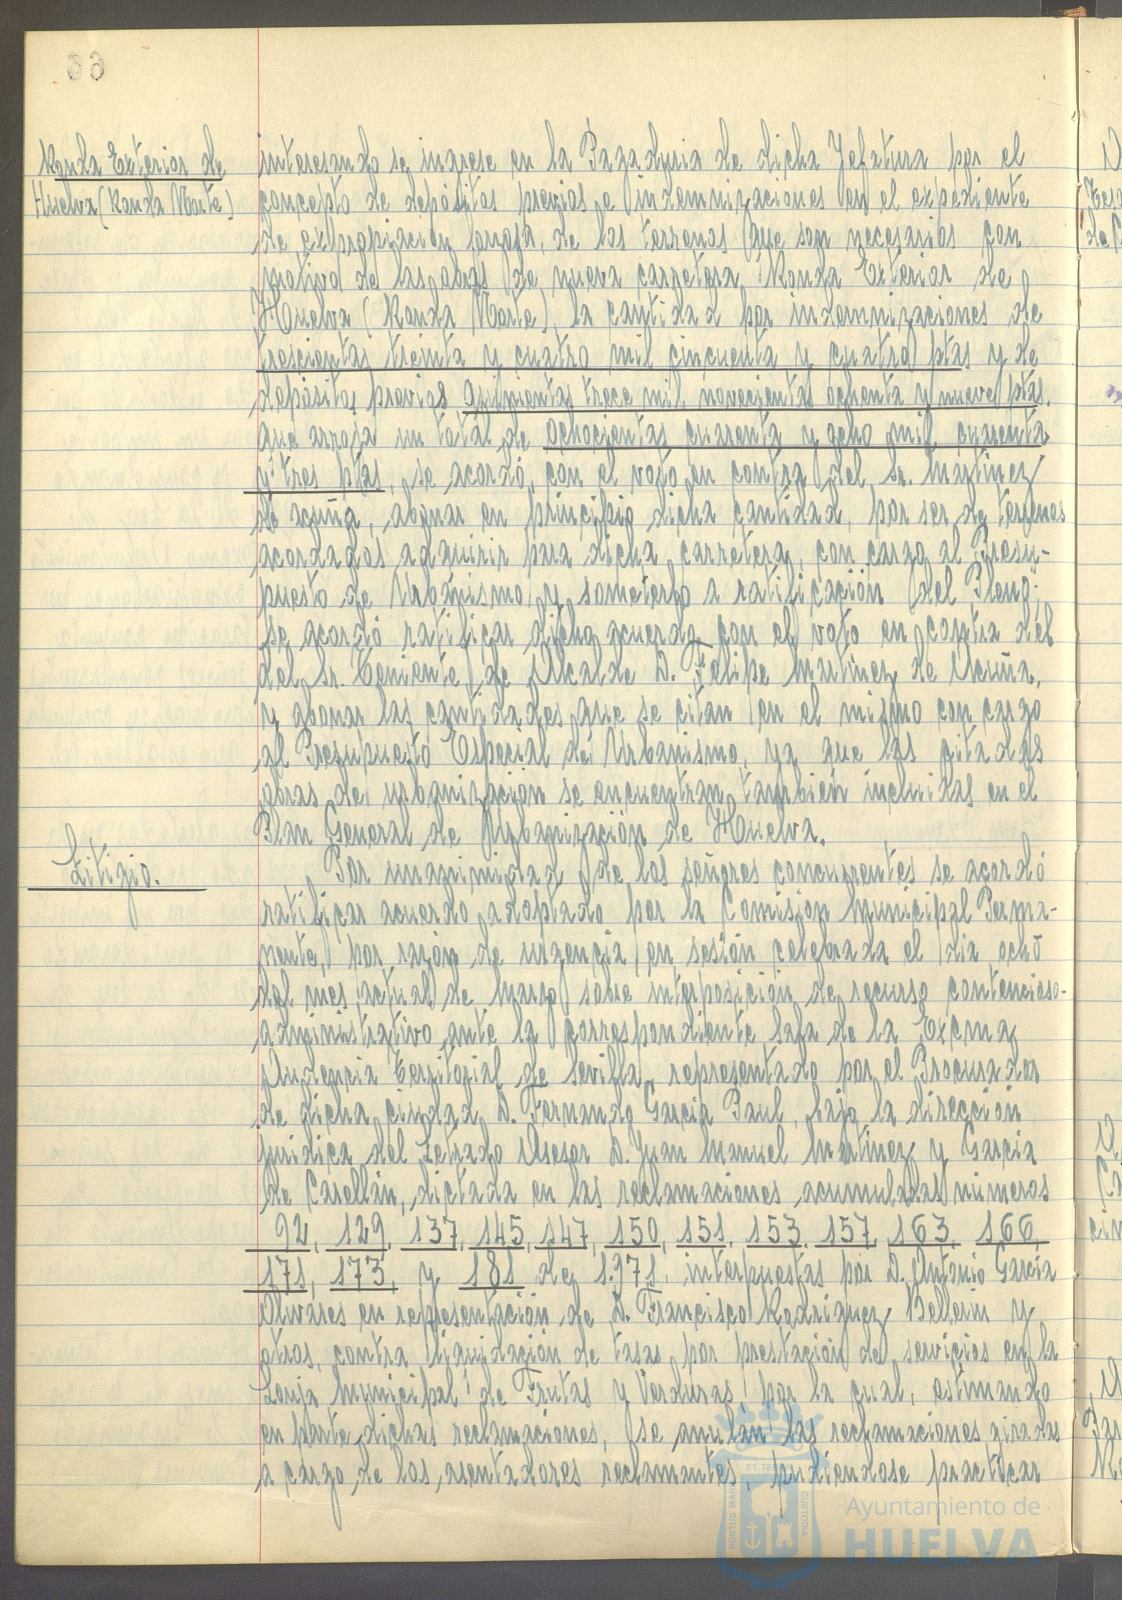 Ronda Exterior de
Huelva (Ronda Norte)
interesando se ingrese en la Pagaduria de dicha Jefatura por el
concepto de depósitos previos e indemnizaciones en el expediente
de expropiación forzosa, de los terrenos que son necesarios con
motivo de las obras de nueva carretera Ronda Exterior de
Huelva (Ronda Norte), la cantidad por indemnizaciones de
trescientas treinta y cuatro mil cincuenta y cuatro ptas y de
depósitos previos quinientas trece mil novecientas ochenta y nueve ptas.
que arroja un total de ochocientas cuarenta y ocho mil cuarenta
y tres ptas, se acordó, con el voto en contra del Sr. Martinez
de Acuña, abonar en principio dicha cantidad, por ser de terrenos
acordados adquirir para dicha carretera, con cargo al Presu-
puesto de Urbanismo, y someterlo a ratificación del Pleno;
se acordó ratificar dicho acuerdo con el voto en contra del
del Sr. Teniente de Alcalde D. Felipe Martinez de Acuña,
y abonar las cantidades que se citan en el mismo con cargo
al Presupuesto Especial de Urbanismo, ya que las citadas
obras de urbanización se encuentran también incluidas en el
Plan General de Urbanización de Huelva.
Litigio.
Por unanimidad de los señores concurrentes se acordó
ratificar acuerdo adoptado por la Comisión Municipal Perma-
nente, por razón de urgencia, en sesión celebrada el dia ocho
del mes actual de Marzo, sobre interposición de recurso contencioso-
administrativo ante la correspondiente Sala de la Excma
Audiencia Territorial de Sevilla, representado por el Procurador
de dicha ciudad, D. Fernando Garcia Paul, bajo la dirección
juridica del Letrado Asesor D. Juan Manuel Martinez y Garcia
de Casellán, dictada en las reclamaciones acumuladas números
92, 129, 137, 145, 147, 150, 151, 153, 157, 163, 166,
171, 173, y 181 de 1.971, interpuestas por D. Antonio Garcia
Olivares en representación de D. Francisco Rodriguez Bellerin y
otros, contra liquidación de tasas por prestación de servicios en la
Lonja Municipal de Frutas y Verduras, por la cual, estimando
en parte dichas reclamaciones, se anulan las reclamaciones giradas
a cargo de los asentadores reclamantes, pudiendose practicar
PORTUS MARIS
ET TERRAE
CUSTODIA
Ayuntamiento de
HUELVA